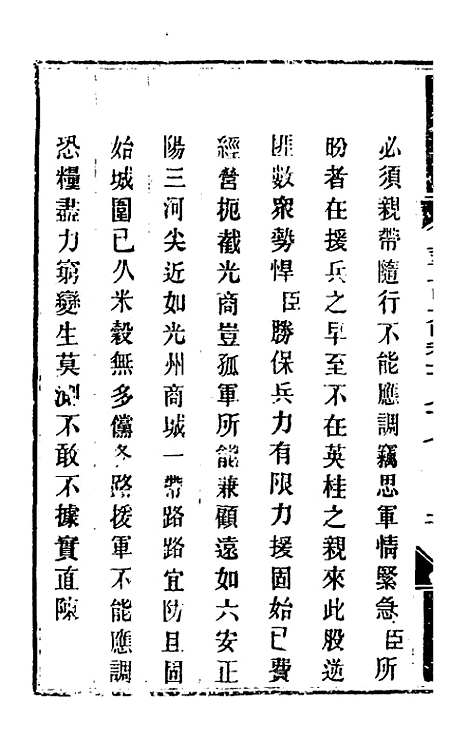 必須親帶隨行不能應調竊思軍情緊急臣所
盼者在援兵之早至不在英桂之親來此股逆
匪數衆勢悍臣勝保兵力有限力援固始已費
經營扼截光商豈孤軍所能兼顧遠如六安正
陽三河尖近如光州商城一帶路路宜防且固
始城圍已久米穀無多儻各路援軍不能應調
恐糧盡力窮變生莫測不敢不據實直陳